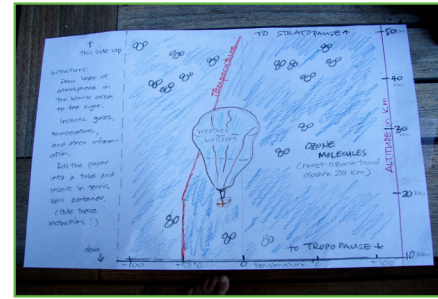 This side up
Instructions:
Draw layer of
atmosphere in
the blank area
to the right.
Include gases,
temperature,
and other inform-
ation.
Roll the paper
into a tube and
insert in tennis
ball container.
(Hide these
instructions!)
down
TO STRATOPAUSE
Temperature
weather
balloons
OZONE
MOLECULES
(most ozone found
above 20 km)
to TROPOPAUSE
-100
-50°C
temperature
°C
+100
ALTITUDE in Km
50
km
40
km
30
km
20
km
10 km